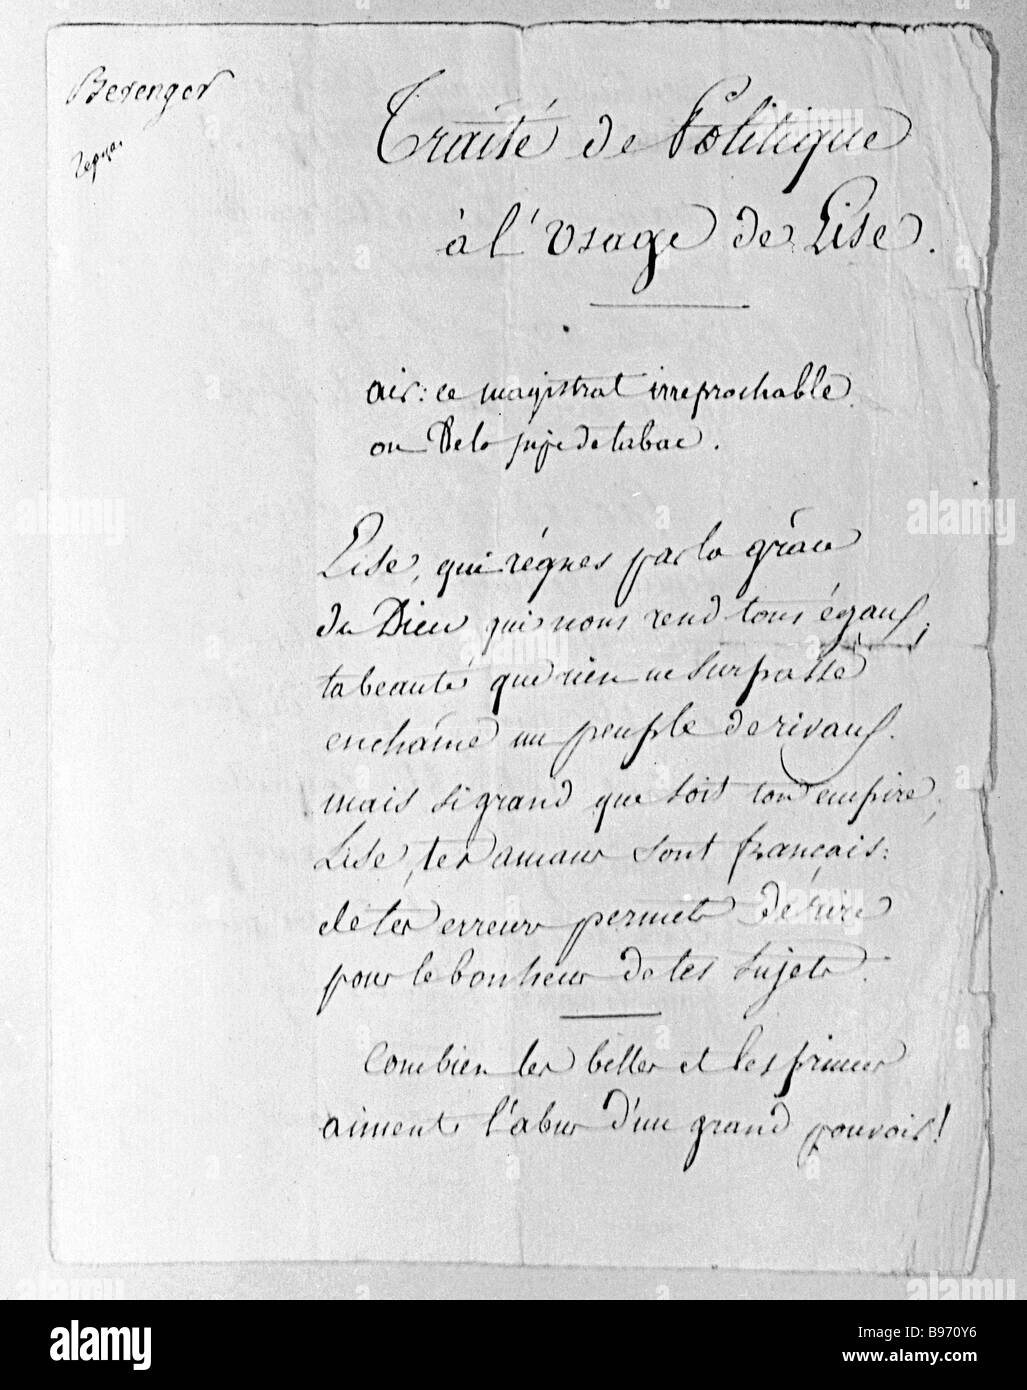 Berenger
Traité de Politique
à l'Usage de Lise.
air: ce magistrat irreprochable
ou De la pipe de tabac.
Lise, qui règnes par la grâce
du Dieu qui nous rend tous égaux,
ta beauté que rien ne surpasse
enchaîne un peuple de rivaux.
mais si grand que soit ton empire,
Lise, tes amans sont français:
de tes erreurs permets de rire
pour le bonheur de tes sujets.
Combien les belles et les princes
aiment l'abus d'un grand pouvoir!
alamy
Image ID: B970Y6
www.alamy.com